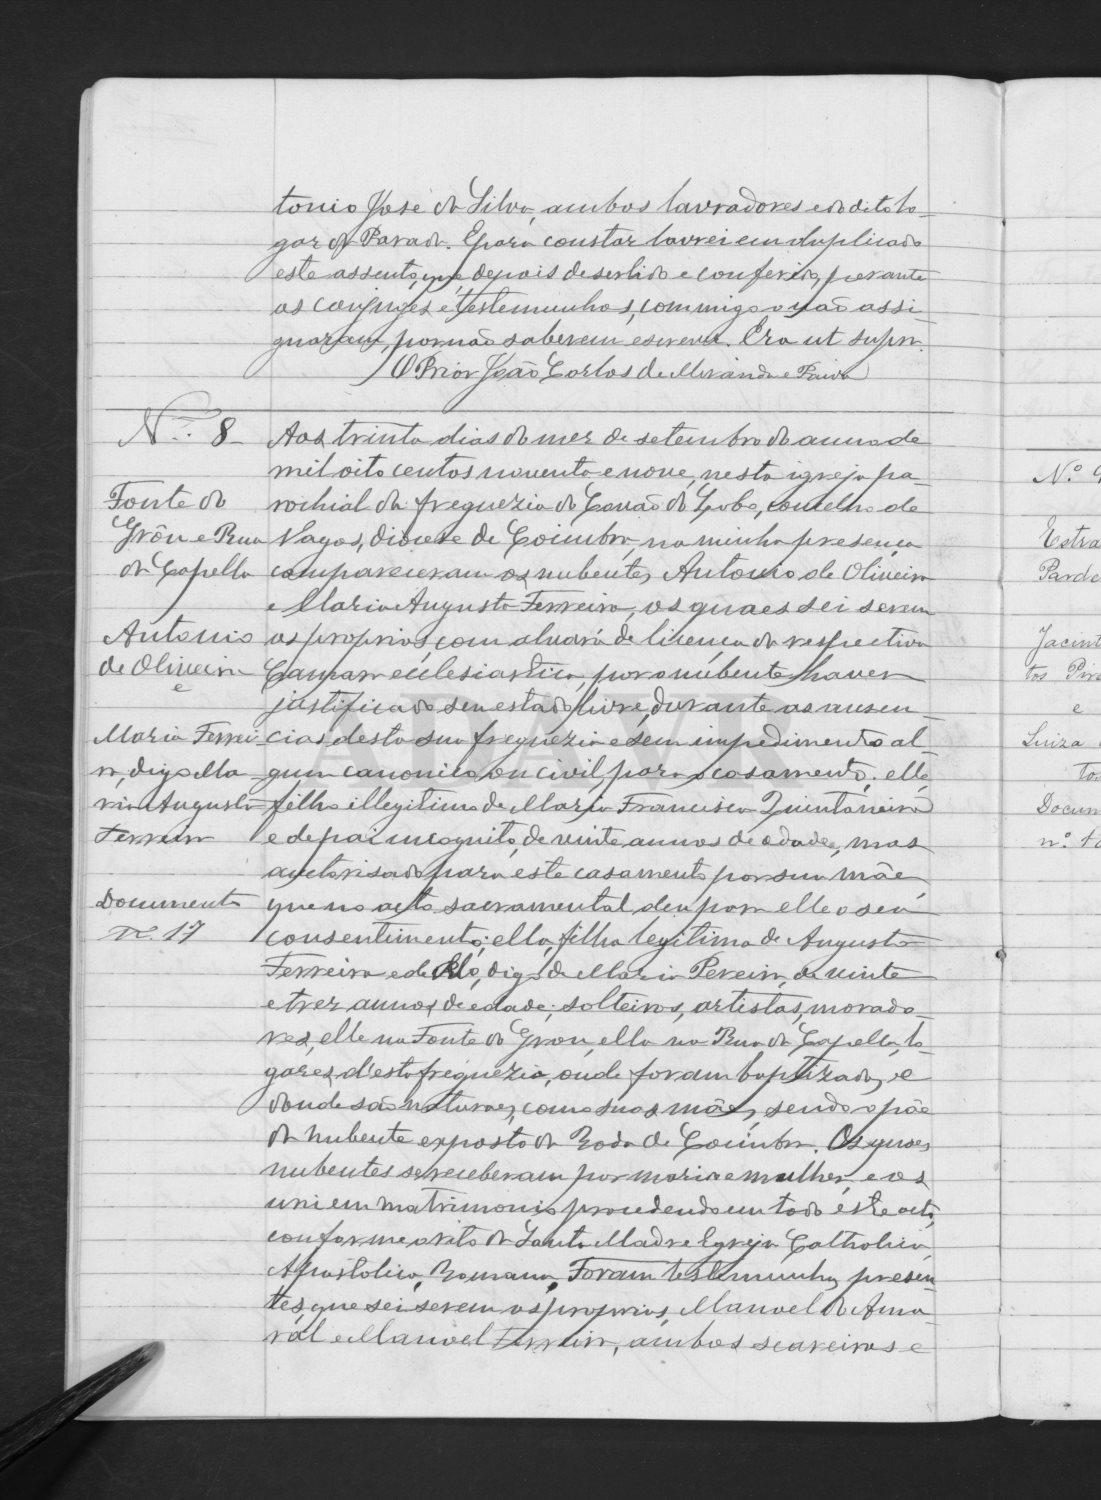 tonio José da Silva, ambos lavradores e do dito lo-
gar da Parada. E para constar lavrei em duplicado
este assento, que, depois de ser lido e conferido, perante
os conjuges e testemunhas, commigo o não assi-
gnaram, por não saberem escrever. Era ut supra.
O Prior João Carlos de Miranda e Paiva
N.º 8
Fonte do
Grôu e Rua
da Capella
Antonio
de Oliveira
e
Maria Ferrei-
ra, digo Ma-
ria Augusta
Ferreira
Documento
n.º 17
Aos trinta dias do mez de setembro do anno de
mil oito centos noventa e nove, nesta igreja pa-
rochial da freguezia do Covão do Lobo, concelho de
Vagos, diocese de Coimbra, na minha presença
compareceram os nubentes Antonio de Oliveira
e Maria Augusta Ferreira, os quaes sei serem
os proprios, com alvará de licença da respectiva
Camara ecclesiastica, por o nubente haver
justificado seu estado livre, durante as ausen-
cias desta sua freguezia e sem impedimento al-
gum canonico, ou civil, para o casamento; elle
filho illegitimo de Maria Francisca Quintaneira
e de pai incognito, de vinte annos de edade, mas
auctorisado para este casamento por sua mãe,
que no acto sacramental deu por elle o seu
consentimento; ella, filha legitima de Augusto
Ferreira e de digo de Maria Pereira, de vinte
e trez annos de edade; solteiros, artistas, morado-
res, elle na Fonte do Grou, ella na Rua da Capella, lo-
gares d'esta freguezia, onde foram baptizados, e
donde são naturaes, como suas mães, sendo o pae
da nubente exposto da Roda de Coimbra. Os quaes
nubentes se receberam por marido e mulher, e os
uni em matrimonio procedendo em todo este acto,
conforme o rito da Santa Madre Egreja Catholica,
Apostolica, Romana. Foram testemunhas presen-
tes, que sei serem os proprios, Manoel do Ama-
ral e Manoel Ferreira, ambos seareiros e
N.º 9
Estra
Parda
Jacint
tos Pire
e
Luiza
Docum
n.º